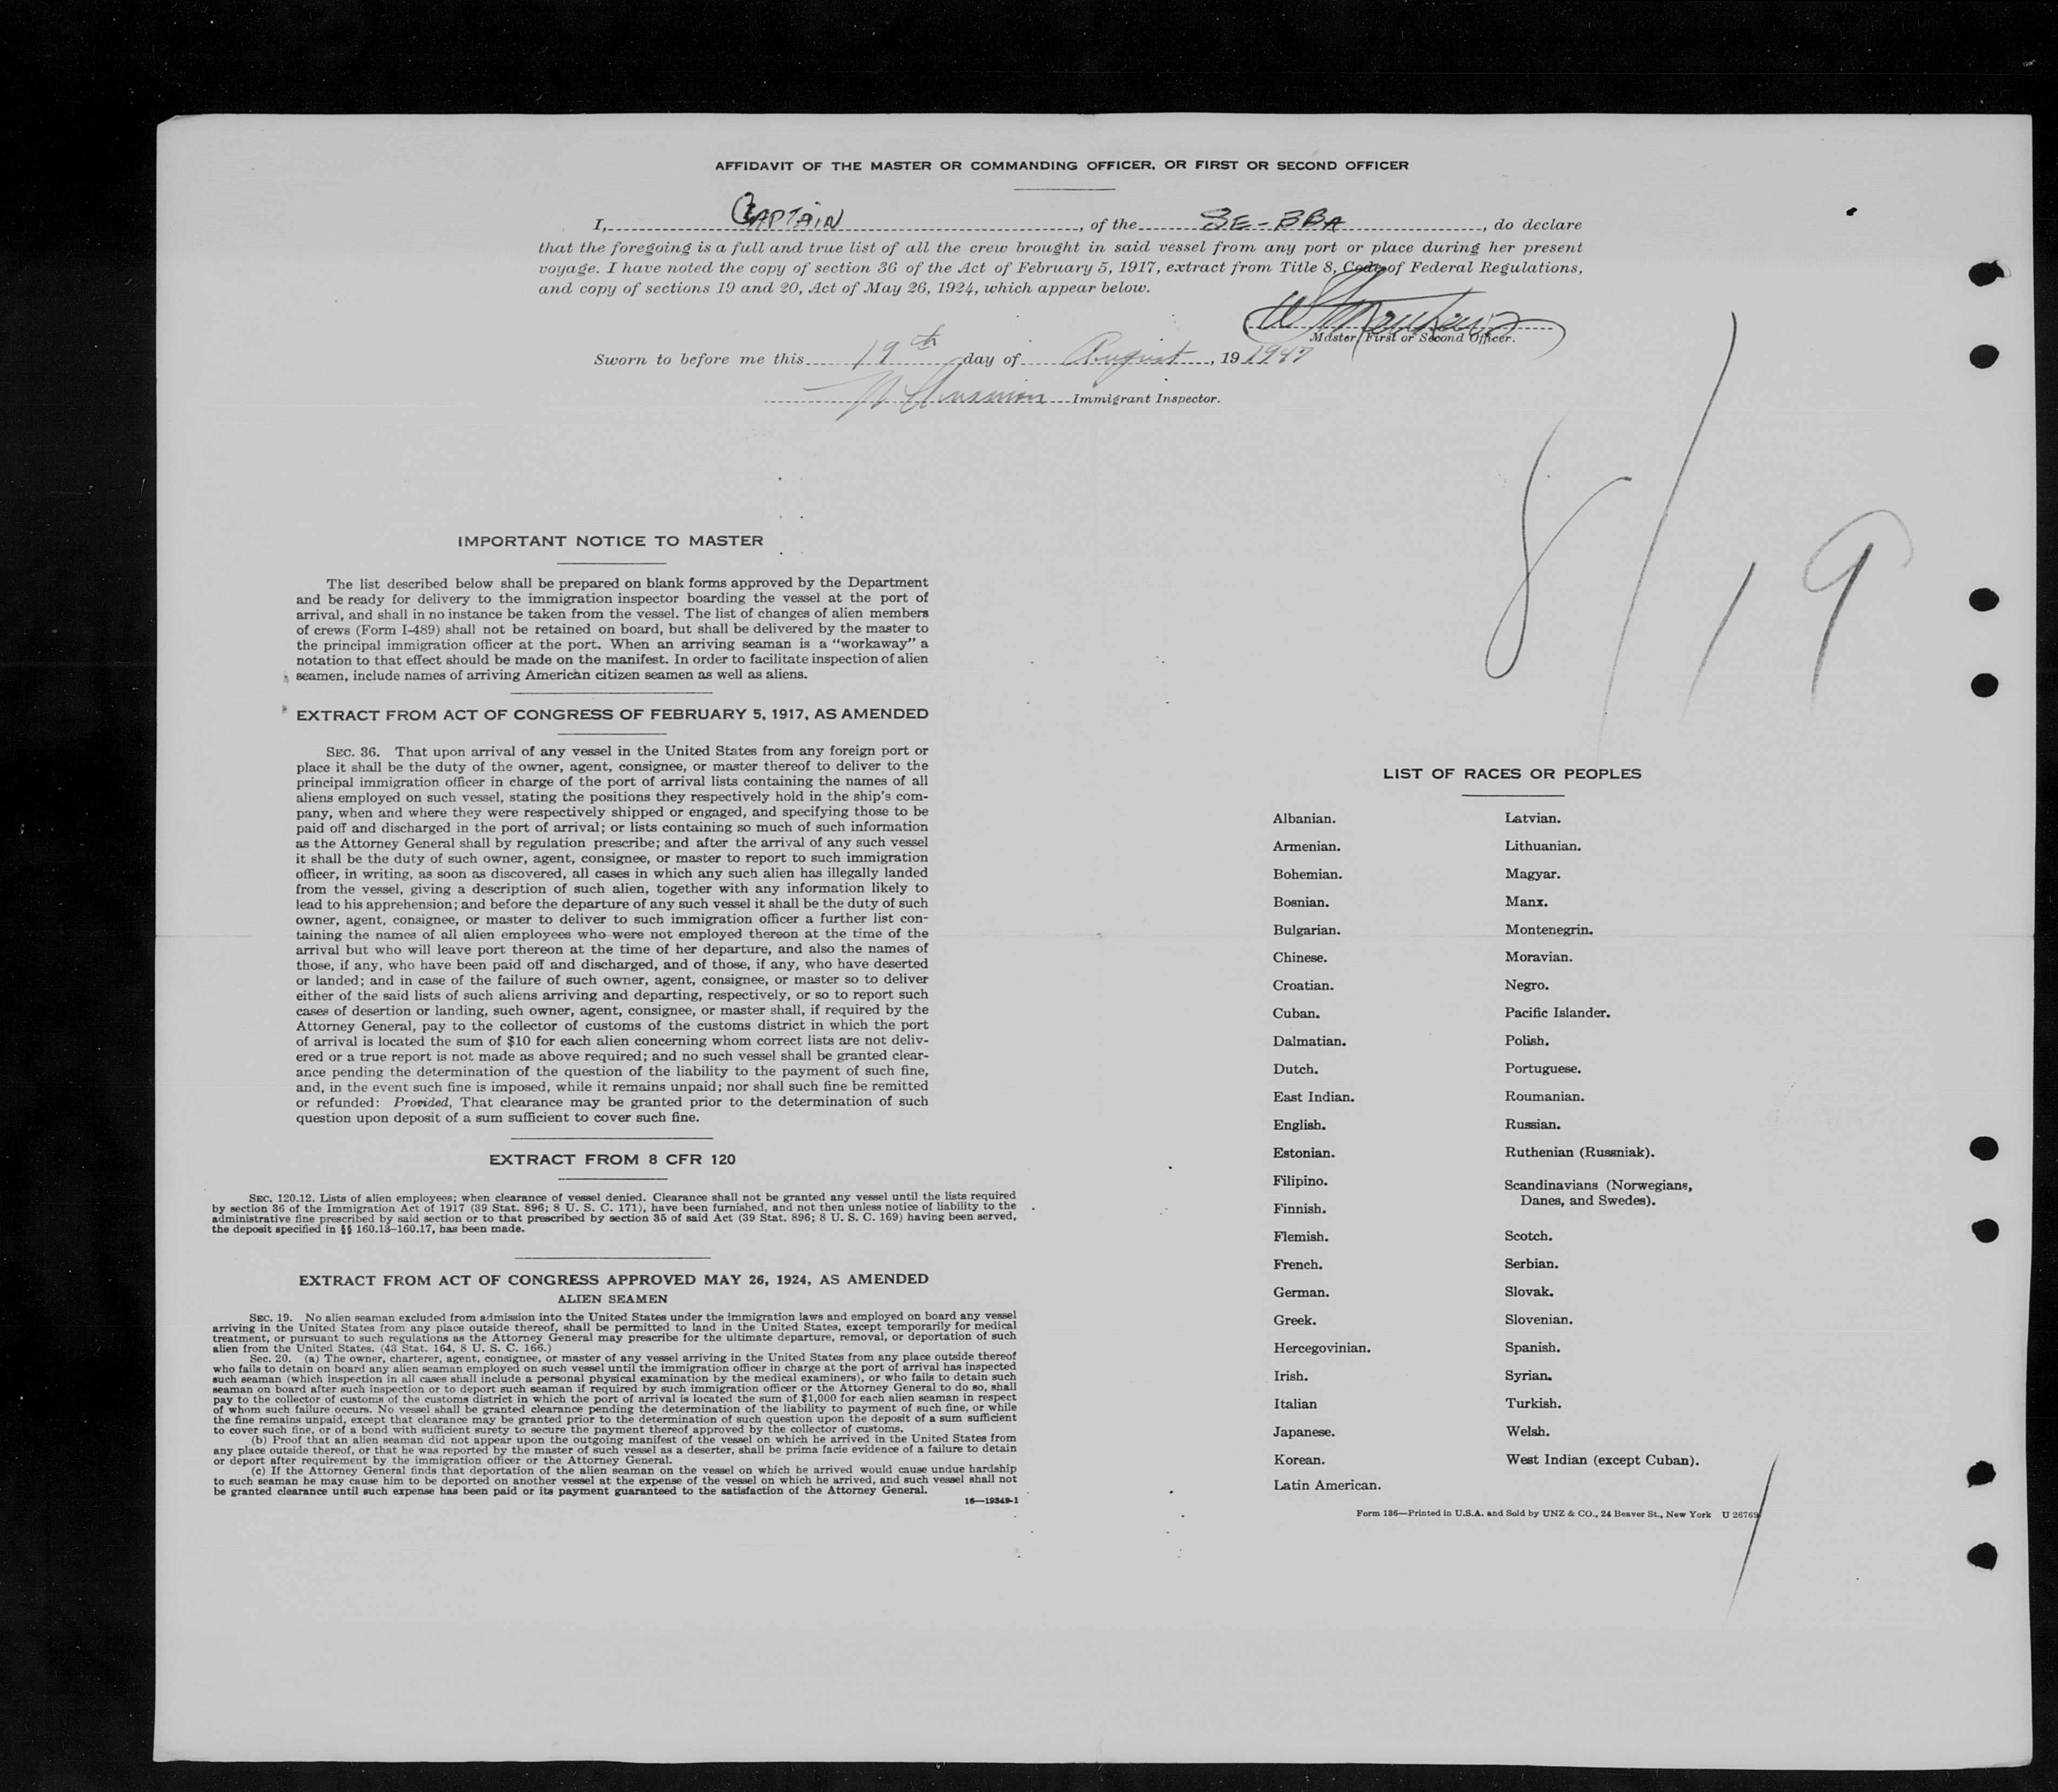 AFFIDAVIT OF THE MASTER OR COMMANDING OFFICER, OR FIRST OR SECOND OFFICER
I, CAPTAIN, of the SE-BBA, do declare
that the foregoing is a full and true list of all the crew brought in said vessel from any port or place during her present
voyage. I have noted the copy of section 36 of the Act of February 5, 1917, extract from Title 8, Code of Federal Regulations,
and copy of sections 19 and 20, Act of May 26, 1924, which appear below.
Master, First or Second Officer.
Sworn to before me this 19th day of August, 19 1947
Immigrant Inspector.
8/19
IMPORTANT NOTICE TO MASTER
The list described below shall be prepared on blank forms approved by the Department
and be ready for delivery to the immigration inspector boarding the vessel at the port of
arrival, and shall in no instance be taken from the vessel. The list of changes of alien members
of crews (Form I-489) shall not be retained on board, but shall be delivered by the master to
the principal immigration officer at the port. When an arriving seaman is a "workaway" a
notation to that effect should be made on the manifest. In order to facilitate inspection of alien
seamen, include names of arriving American citizen seamen as well as aliens.
EXTRACT FROM ACT OF CONGRESS OF FEBRUARY 5, 1917, AS AMENDED
SEC. 36. That upon arrival of any vessel in the United States from any foreign port or
place it shall be the duty of the owner, agent, consignee, or master thereof to deliver to the
principal immigration officer in charge of the port of arrival lists containing the names of all
aliens employed on such vessel, stating the positions they respectively hold in the ship's com-
pany, when and where they were respectively shipped or engaged, and specifying those to be
paid off and discharged in the port of arrival; or lists containing so much of such information
as the Attorney General shall by regulation prescribe; and after the arrival of any such vessel
it shall be the duty of such owner, agent, consignee, or master to report to such immigration
officer, in writing, as soon as discovered, all cases in which any such alien has illegally landed
from the vessel, giving a description of such alien, together with any information likely to
lead to his apprehension; and before the departure of any such vessel it shall be the duty of such
owner, agent, consignee, or master to deliver to such immigration officer a further list con-
taining the names of all alien employees who were not employed thereon at the time of the
arrival but who will leave port thereon at the time of her departure, and also the names of
those, if any, who have been paid off and discharged, and of those, if any, who have deserted
or landed; and in case of the failure of such owner, agent, consignee, or master so to deliver
either of the said lists of such aliens arriving and departing, respectively, or so to report such
cases of desertion or landing, such owner, agent, consignee, or master shall, if required by the
Attorney General, pay to the collector of customs of the customs district in which the port
of arrival is located the sum of $10 for each alien concerning whom correct lists are not deliv-
ered or a true report is not made as above required; and no such vessel shall be granted clear-
ance pending the determination of the question of the liability to the payment of such fine,
and, in the event such fine is imposed, while it remains unpaid; nor shall such fine be remitted
or refunded: Provided, That clearance may be granted prior to the determination of such
question upon deposit of a sum sufficient to cover such fine.
EXTRACT FROM 8 CFR 120
SEC. 120.12. Lists of alien employees; when clearance of vessel denied. Clearance shall not be granted any vessel until the lists required
by section 36 of the Immigration Act of 1917 (39 Stat. 896; 8 U. S. C. 171), have been furnished, and not then unless notice of liability to the
administrative fine prescribed by said section or to that prescribed by section 35 of said Act (39 Stat. 896; 8 U. S. C. 169) having been served,
the deposit specified in §§ 160.13-160.17, has been made.
EXTRACT FROM ACT OF CONGRESS APPROVED MAY 26, 1924, AS AMENDED
ALIEN SEAMEN
SEC. 19. No alien seaman excluded from admission into the United States under the immigration laws and employed on board any vessel
arriving in the United States from any place outside thereof, shall be permitted to land in the United States, except temporarily for medical
treatment, or pursuant to such regulations as the Attorney General may prescribe for the ultimate departure, removal, or deportation of such
alien from the United States. (43 Stat. 164, 8 U. S. C. 166.)
Sec. 20. (a) The owner, charterer, agent, consignee, or master of any vessel arriving in the United States from any place outside thereof
who fails to detain on board any alien seaman employed on such vessel until the immigration officer in charge at the port of arrival has inspected
such seaman (which inspection in all cases shall include a personal physical examination by the medical examiners), or who fails to detain such
seaman on board after such inspection or to deport such seaman if required by such immigration officer or the Attorney General to do so, shall
pay to the collector of customs of the customs district in which the port of arrival is located the sum of $1,000 for each alien seaman in respect
of whom such failure occurs. No vessel shall be granted clearance pending the determination of the liability to payment of such fine, or while
the fine remains unpaid, except that clearance may be granted prior to the determination of such question upon the deposit of a sum sufficient
to cover such fine, or of a bond with sufficient surety to secure the payment thereof approved by the collector of customs.
(b) Proof that an alien seaman did not appear upon the outgoing manifest of the vessel on which he arrived in the United States from
any place outside thereof, or that he was reported by the master of such vessel as a deserter, shall be prima facie evidence of a failure to detain
or deport after requirement by the immigration officer or the Attorney General.
(c) If the Attorney General finds that deportation of the alien seaman on the vessel on which he arrived would cause undue hardship
to such seaman he may cause him to be deported on another vessel at the expense of the vessel on which he arrived, and such vessel shall not
be granted clearance until such expense has been paid or its payment guaranteed to the satisfaction of the Attorney General.
16—19349-1
LIST OF RACES OR PEOPLES
Albanian.
Armenian.
Bohemian.
Bosnian.
Bulgarian.
Chinese.
Croatian.
Cuban.
Dalmatian.
Dutch.
East Indian.
English.
Estonian.
Filipino.
Finnish.
Flemish.
French.
German.
Greek.
Hercegovinian.
Irish.
Italian
Japanese.
Korean.
Latin American.
Latvian.
Lithuanian.
Magyar.
Manx.
Montenegrin.
Moravian.
Negro.
Pacific Islander.
Polish.
Portuguese.
Roumanian.
Russian.
Ruthenian (Russniak).
Scandinavians (Norwegians,
Danes, and Swedes).
Scotch.
Serbian.
Slovak.
Slovenian.
Spanish.
Syrian.
Turkish.
Welsh.
West Indian (except Cuban).
Form 136—Printed in U.S.A. and Sold by UNZ & CO., 24 Beaver St., New York U 26769